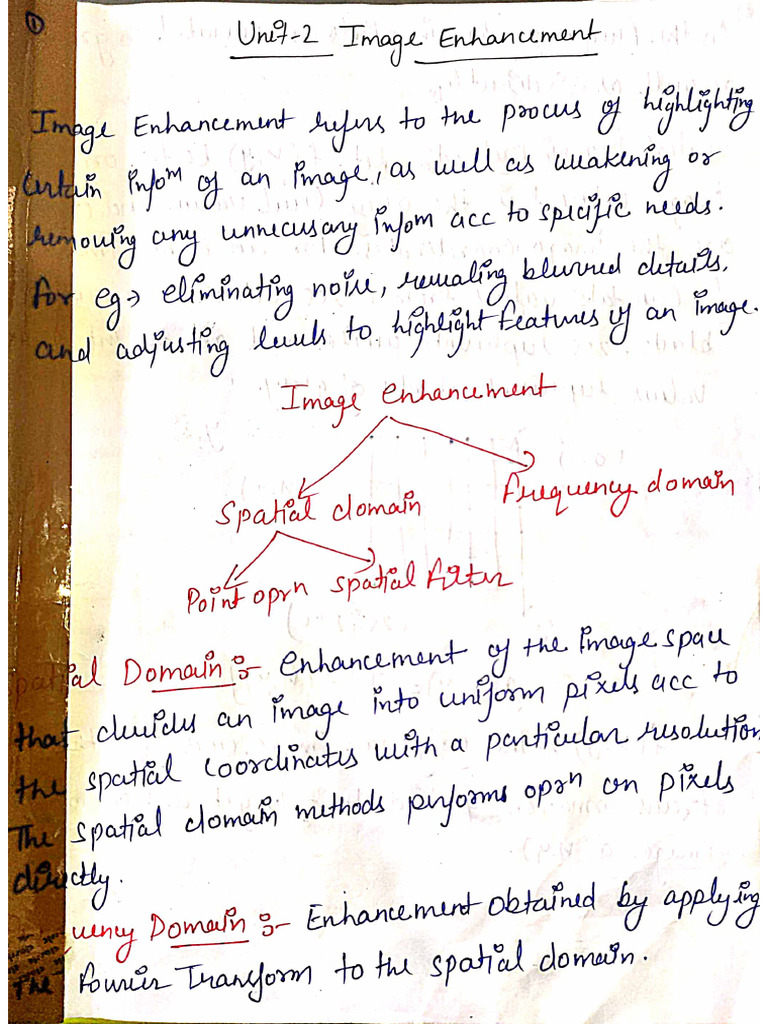 1
Unit-2 Image Enhancement
Image Enhancement refers to the process of highlighting
certain infoᵐ of an image, as well as weakening or
removing any unnecessary infom acc to specific needs.
for eg → eliminating noise, revealing blurred details,
and adjusting levels to highlight features of an image.
Image enhancement
Spatial domain Frequency domain
Point oprn spatial filter
patial Domain :- enhancement of the image space
that devides an image into uniform pixels acc to
the spatial coordinates with a particular resolution
The spatial domain methods performs oprn on pixels
directly.
uency Domain :- Enhancement obtained by applying
The fourier Transform to the spatial domain.